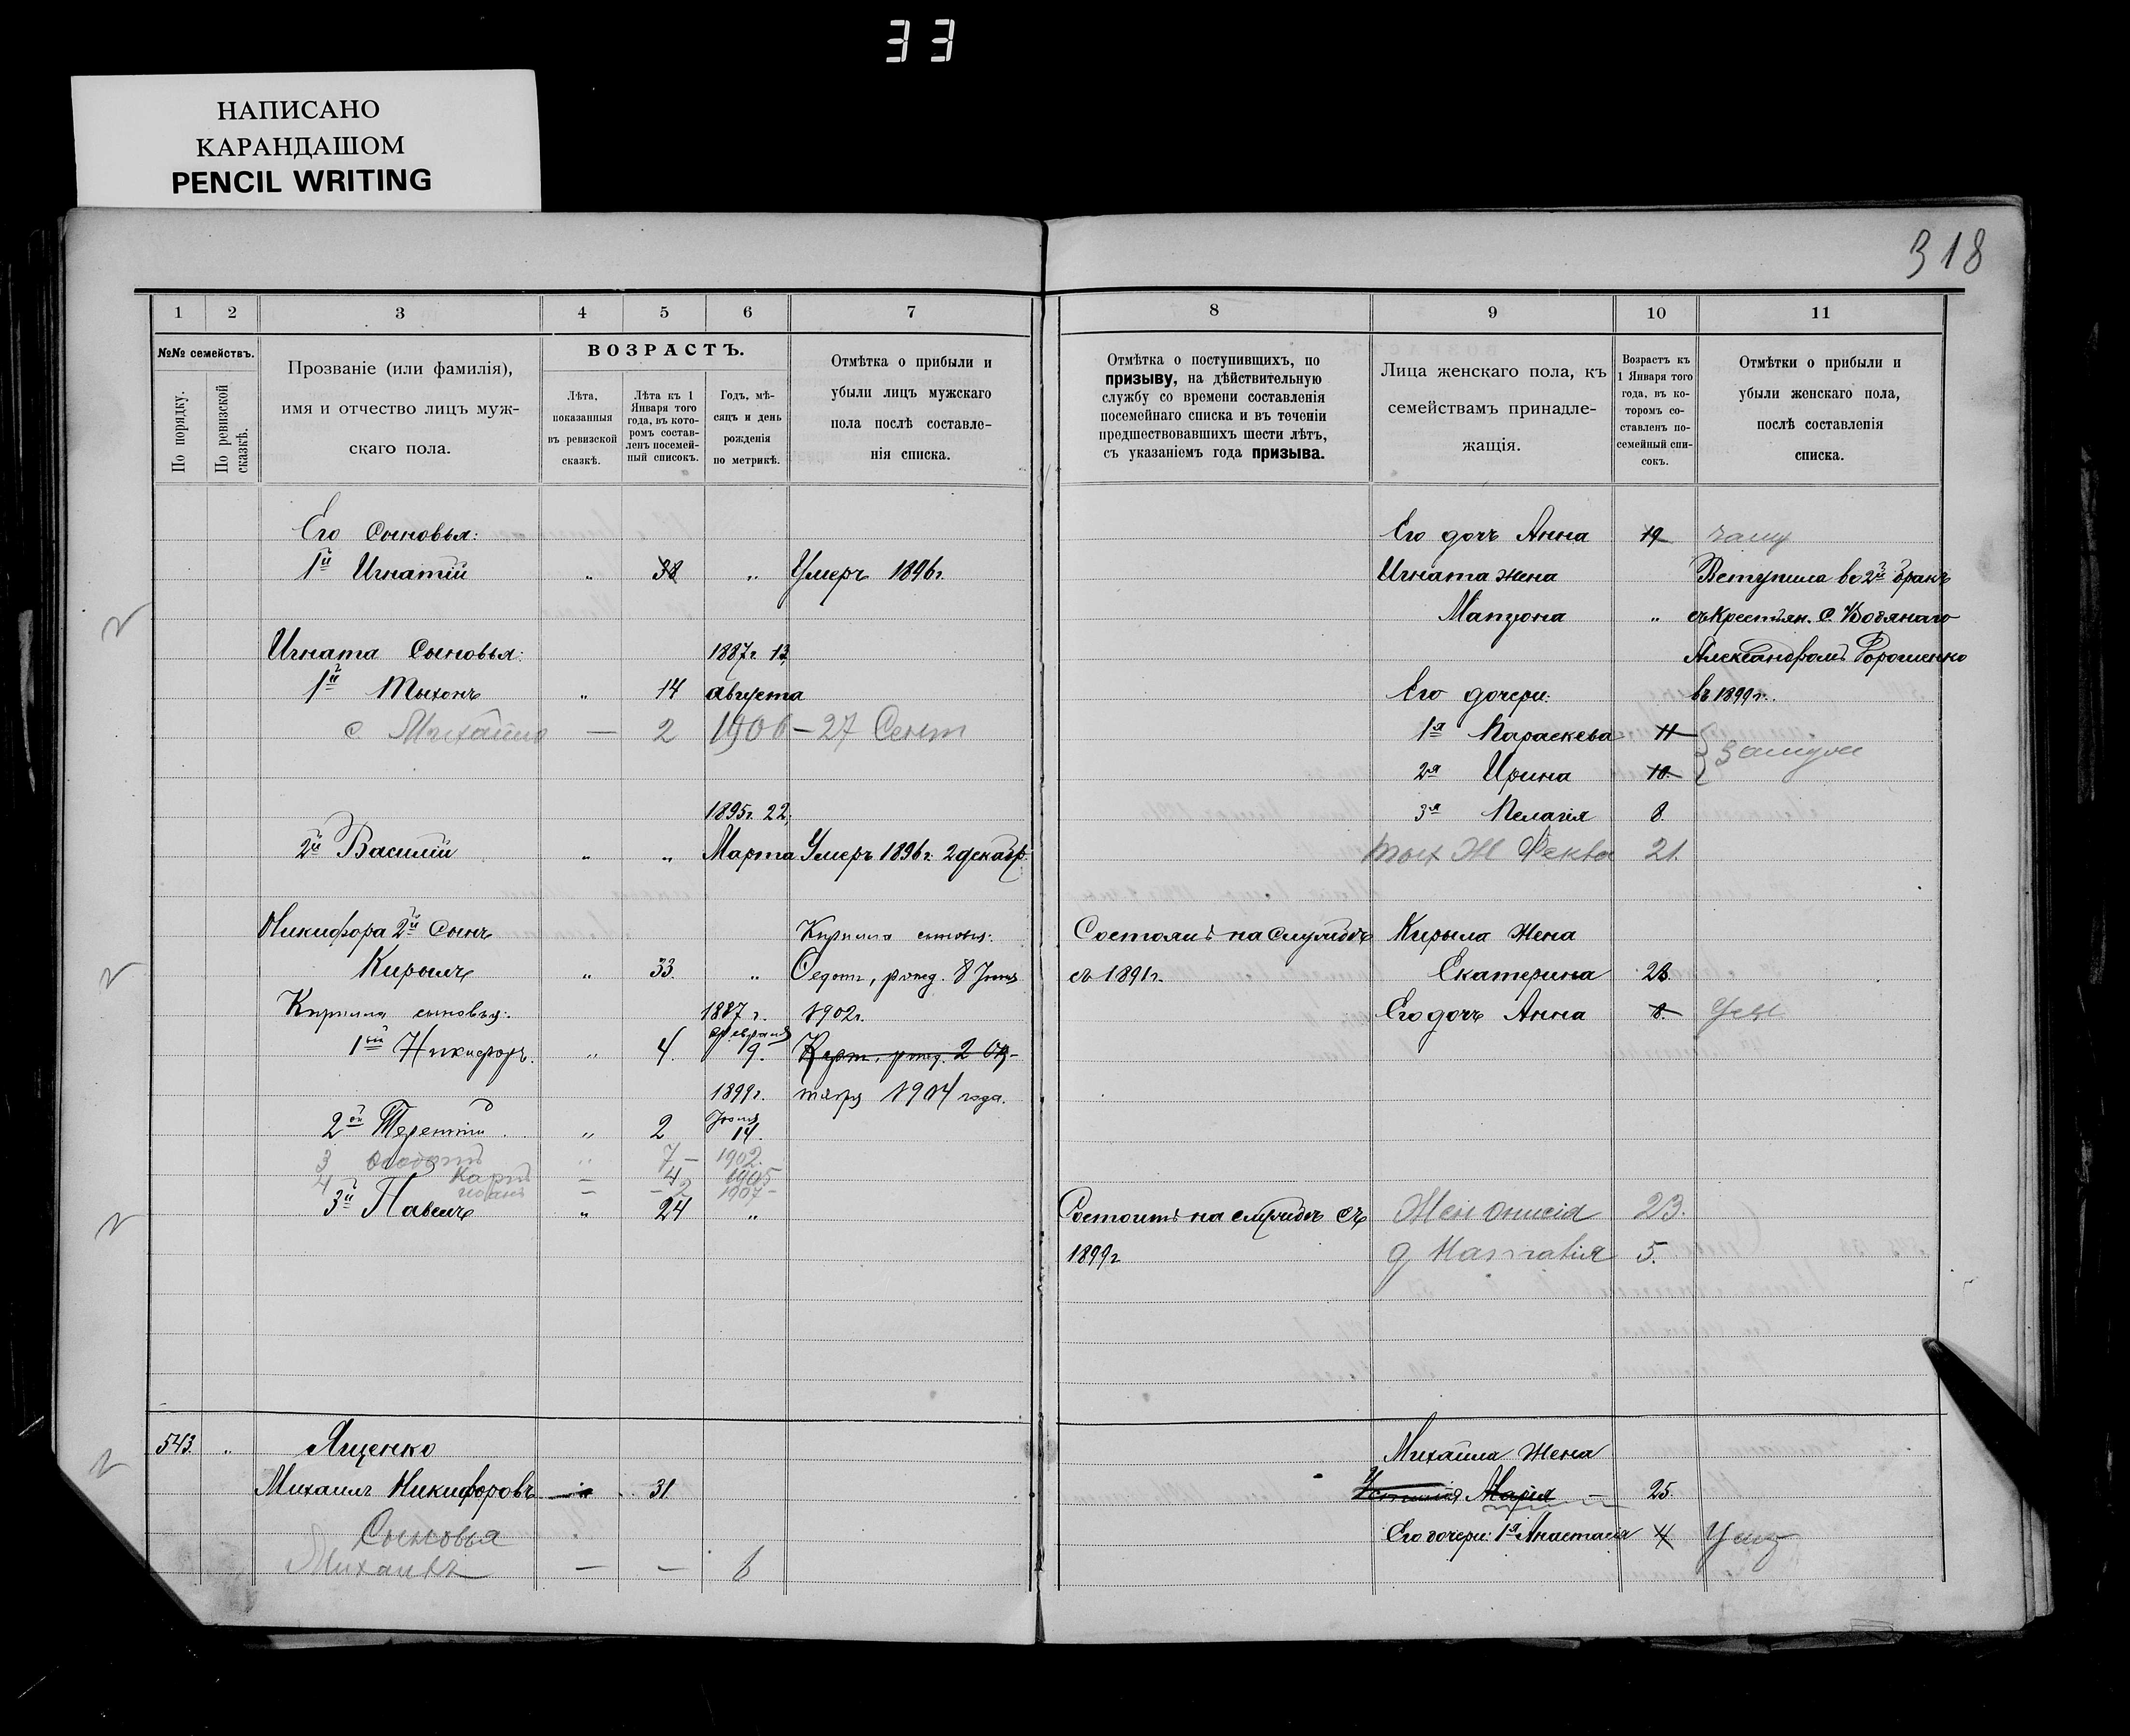 33
НАПИСАНО
КАРАНДАШОМ
PENCIL WRITING
318
1 2 3 4 5 6 7
№№ семействъ.
По порядку.
По ревизской сказкѣ.
Прозваніе (или фамилія),
имя и отчество лицъ муж-
скаго пола.
ВОЗРАСТЪ.
Лѣта,
показанныя
въ ревизской
сказкѣ.
Лѣта къ 1
Января того
года, въ кото-
ромъ состав-
ленъ посемей-
ный списокъ.
Годъ, мѣ-
сяцъ и день
рожденія
по метрикѣ.
Отмѣтка о прибыли и
убыли лицъ мужскаго
пола послѣ составле-
нія списка.
Его Сыновья:
1й Игнатій " 38 " Умеръ 1896г.
Игната Сыновья: 1887г. 13
1й Тыхонъ " 14 августа
с Михаило — 2 1906 – 27 Сент
1895г. 22
2й Василій " " Марта Умеръ 1896г. 2 декабр.
Никифора 2й Сынъ Кирила сыновья:
Кирылъ " 33 " Федотъ, рожд. 8
Кирила сыновья: 1887 г. 1902г.
1ый Никифоръ. " 4. февраля 9. Карпъ, рожд. 2 Ок-
1899г. тября 1904 года.
2ой Терентій " 2 14.
3 Федотъ " 7 – 1902.
4 Карпъ – 4 1905
– 2 1907 –
3й Павелъ " 24 "
543. " Ященко
Михаилъ Никифоровъ 31
Сыновья
— — 6
8 9 10 11
Отмѣтка о поступившихъ, по
призыву, на дѣйствительную
службу со времени составленія
посемейнаго списка и въ теченіи
предшествовавшихъ шести лѣтъ,
съ указаніемъ года призыва.
Лица женскаго пола, къ
семействамъ принадле-
жащія.
Возрастъ къ
1 Января того
года, въ ко-
торомъ со-
ставленъ по-
семейный спи-
сокъ.
Отмѣтки о прибыли и
убыли женскаго пола,
послѣ составленія
списка.
Его дочъ Анна 19 замуж
Игната жена Вступила во 2й бракъ
Матрона " съ Крестьян. С. Водянаго
Александромъ Дорошенко
Его дочери: въ 1899г.
1я Параскева 11
2я Ирина 10 замужем
3я Пелагія 8.
Тых Ж Фекла 21.
Состоялъ на службѣ Кирыла Жена
съ 1891г. Екатерина 28
Его дочъ Анна 8.
Состоитъ на службѣ съ Жен Онисія 23.
1899г д Наталія 5.
Михаила Жена
Устинія Марія 25.
Его дочери: 1я Анастасія 4